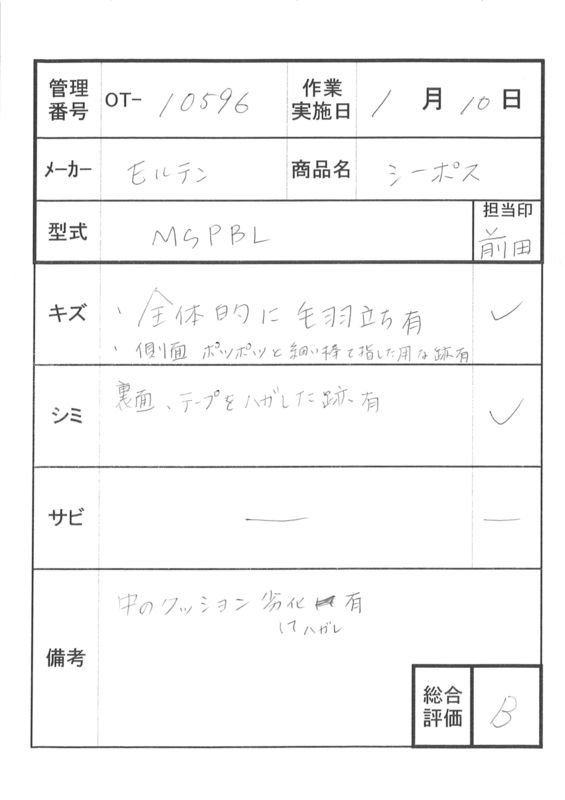 管理番号 OT- 10596 作業実施日 1月10日
メーカー モルテン 商品名 シーポス
型式 MSPBL 担当印 前田
キズ ・全体的に毛羽立ち有 ✓
・側面 ポツポツと細い棒で指した用な跡有
シミ 裏面、テープをハガした跡有 ✓
サビ ― ―
備考 中のクッション劣化 有
してハガレ
総合評価 B